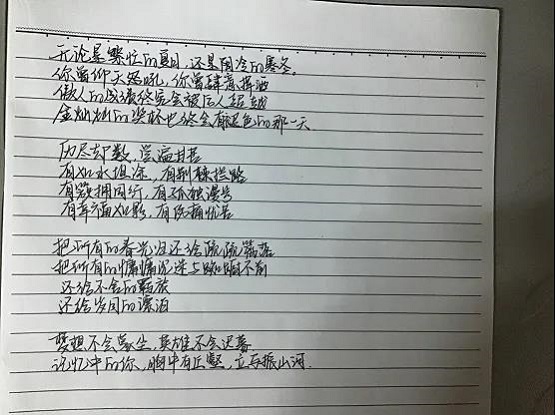 无论是繁忙的夏日,还是阴冷的寒冬。
你曾仰天怒吼,你曾肆意挥洒
傲人的成绩终究会被后人超越
金灿灿的奖杯也终会有褪色的那一天
历尽劫数,尝遍甘苦
有如水坦途,有荆棘拦路
有簇拥同行,有孤独漫步
有幸福如影,有伤痛忧苦
把所有的眷光汪还给疏疏篱落
把所有的慵慵沉迷与踟蹰不前
还给不舍的羁旅
还给岁月的漂泊
梦想不会蒙尘,英雄不会迟暮
记忆中的你,胸中有丘壑,立马振山河.